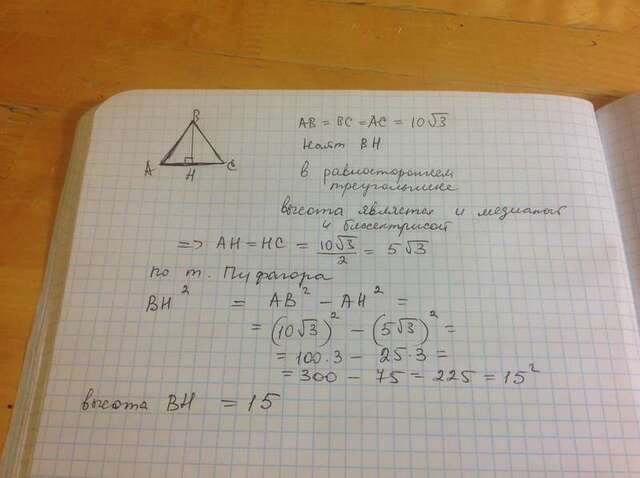 B
A H C
AB = BC = AC = 10√3
Найт BH
в равностороннем
треугольнике
высота является и медианой
и биссектрисой
=> AH = HC = 10√3/2 = 5√3
по т. Пифагора
BH² = AB² − AH² =
= (10√3)² − (5√3)² =
= 100·3 − 25·3 =
= 300 − 75 = 225 = 15²
высота BH = 15